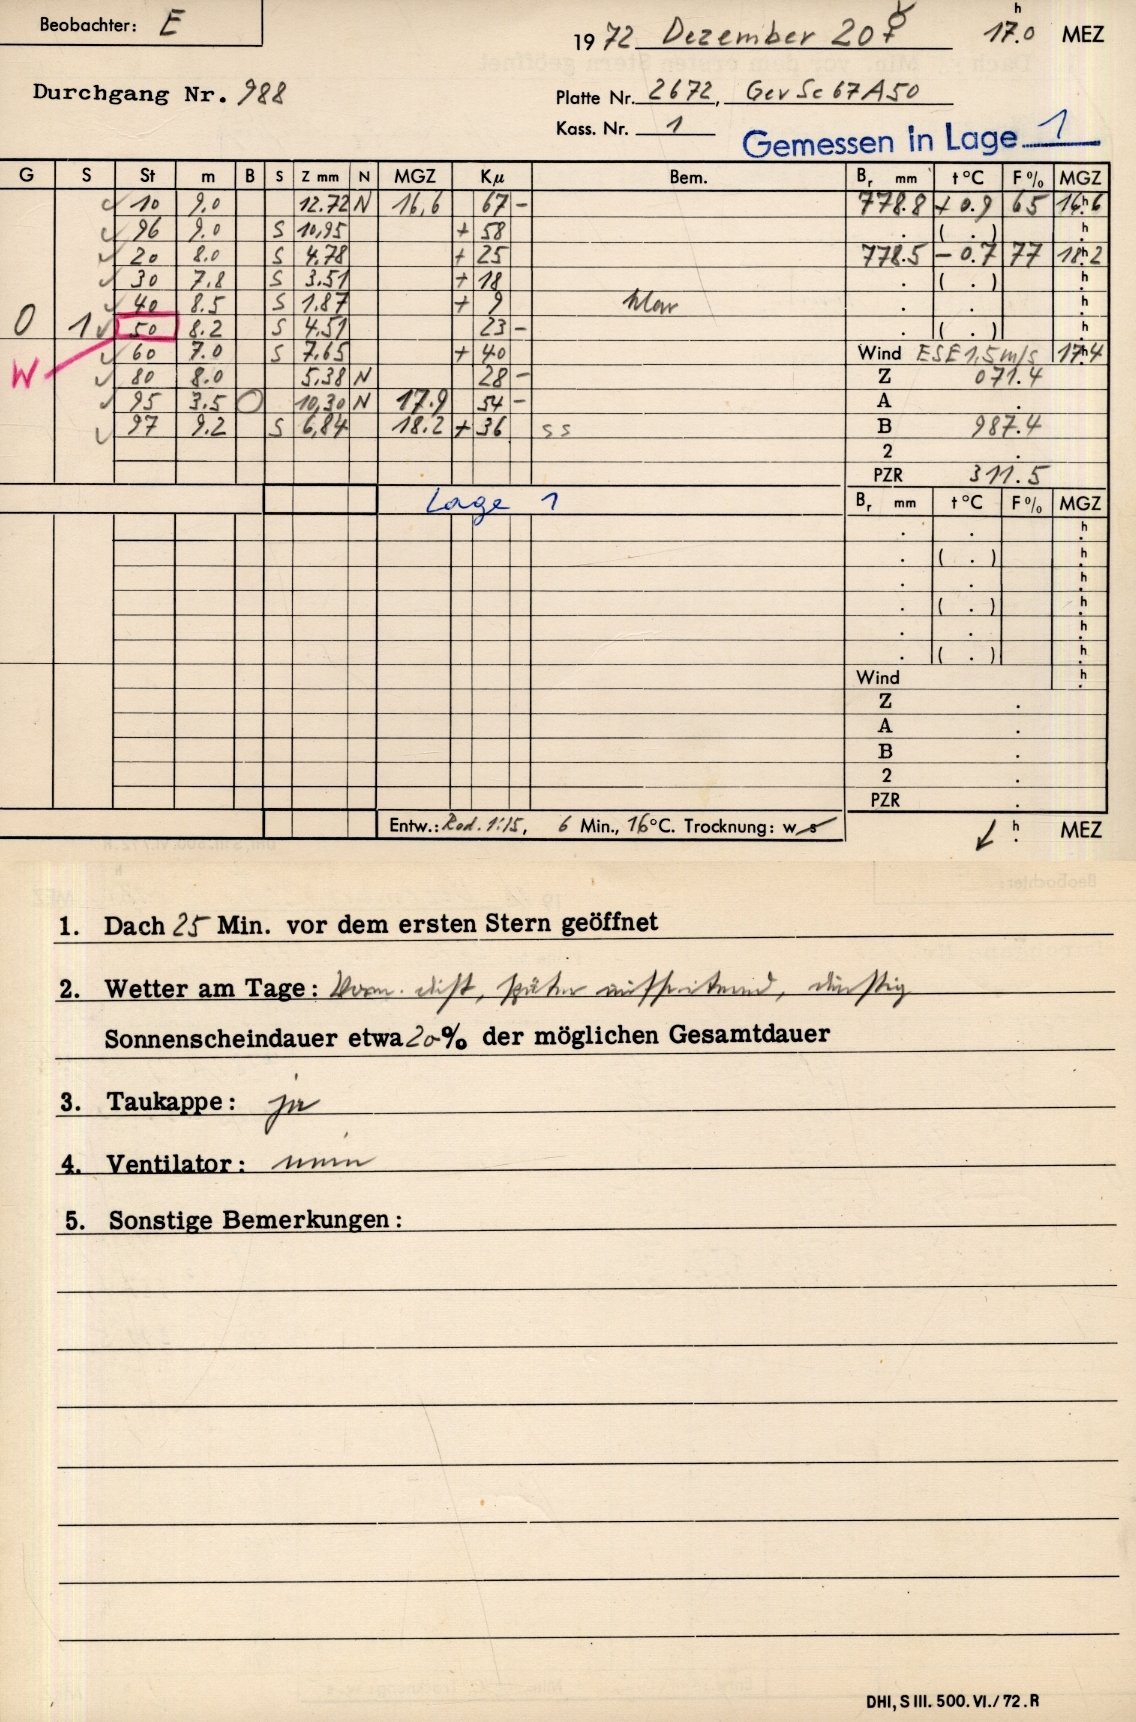 Beobachter: E
1972 Dezember 20 ☿ 17.0 h MEZ
Durchgang Nr. 988
Platte Nr. 2672, GevSc67A50
Kass. Nr. 1
Gemessen in Lage 1
G S St m B S Z mm N MGZ Kμ Bem. Br mm t°C F% MGZ
10 9.0 12.72 N 16,6 67 - 778.8 + 0.9 65 16h6
96 9.0 S 10,95 + 58 . ( . ) h.
20 8.0 S 4.78 + 25 778.5 - 0.7 77 18h2
30 7.8 S 3.51 + 18 . ( . ) h.
40 8.5 S 1,87 + 9 klar . . h.
0 1 50 8.2 S 4.51 23 - . ( . ) h.
W 60 7.0 S 7,65 + 40 Wind ESE 1,5 m/s 17h4
80 8.0 5,38 N 28 - Z 071.4
95 3.5 O 10,30 N 17.9 54 - A .
97 9.2 S 6,84 18.2 + 36 ss B 987.4
2 .
PZR 311.5
Lage 1 Br mm t°C F% MGZ
. . h.
. ( . ) h.
. . h.
. ( . ) h.
. . h.
. ( . ) h.
Wind h.
Z .
A .
B .
2 .
PZR .
Entw.: Rod. 1:15, 6 Min., 16°C. Trocknung: w s
h. MEZ
1. Dach 25 Min. vor dem ersten Stern geöffnet
2. Wetter am Tage: Vorm. dist, später aufheiternd, dunstig
Sonnenscheindauer etwa 20% der möglichen Gesamtdauer
3. Taukappe: ja
4. Ventilator: nein
5. Sonstige Bemerkungen:
DHI, S III. 500. VI./72. R